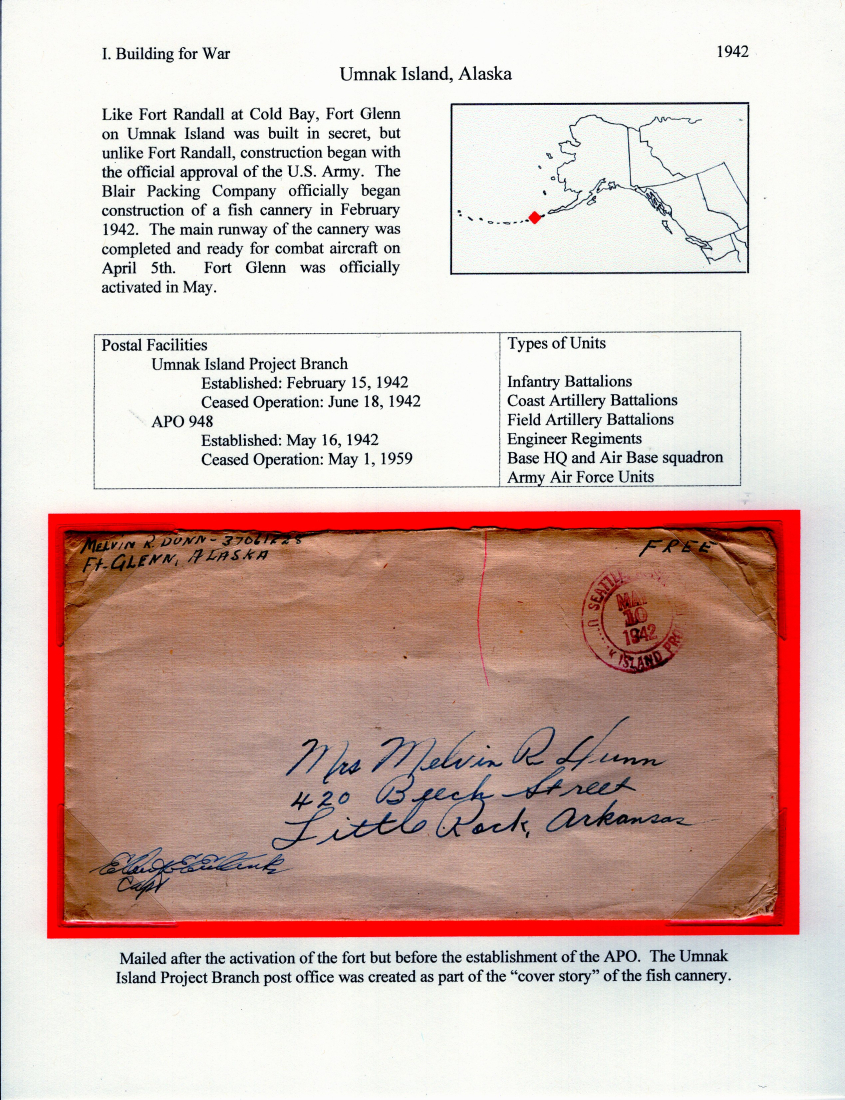 I. Building for War
1942
Umnak Island, Alaska
Like Fort Randall at Cold Bay, Fort Glenn
on Umnak Island was built in secret, but
unlike Fort Randall, construction began with
the official approval of the U.S. Army. The
Blair Packing Company officially began
construction of a fish cannery in February
1942. The main runway of the cannery was
completed and ready for combat aircraft on
April 5th. Fort Glenn was officially
activated in May.
Postal Facilities
Umnak Island Project Branch
Established: February 15, 1942
Ceased Operation: June 18, 1942
APO 948
Established: May 16, 1942
Ceased Operation: May 1, 1959
Types of Units
Infantry Battalions
Coast Artillery Battalions
Field Artillery Battalions
Engineer Regiments
Base HQ and Air Base squadron
Army Air Force Units
MELVIN R DUNN - 37061228
Ft. GLENN, ALASKA
FREE
SEATTLE
MAY
10
1942
K ISLAND PRO
Mrs Melvin R Dunn
420 Beech Street
Little Rock, Arkansas
Capt
Mailed after the activation of the fort but before the establishment of the APO. The Umnak
Island Project Branch post office was created as part of the “cover story” of the fish cannery.